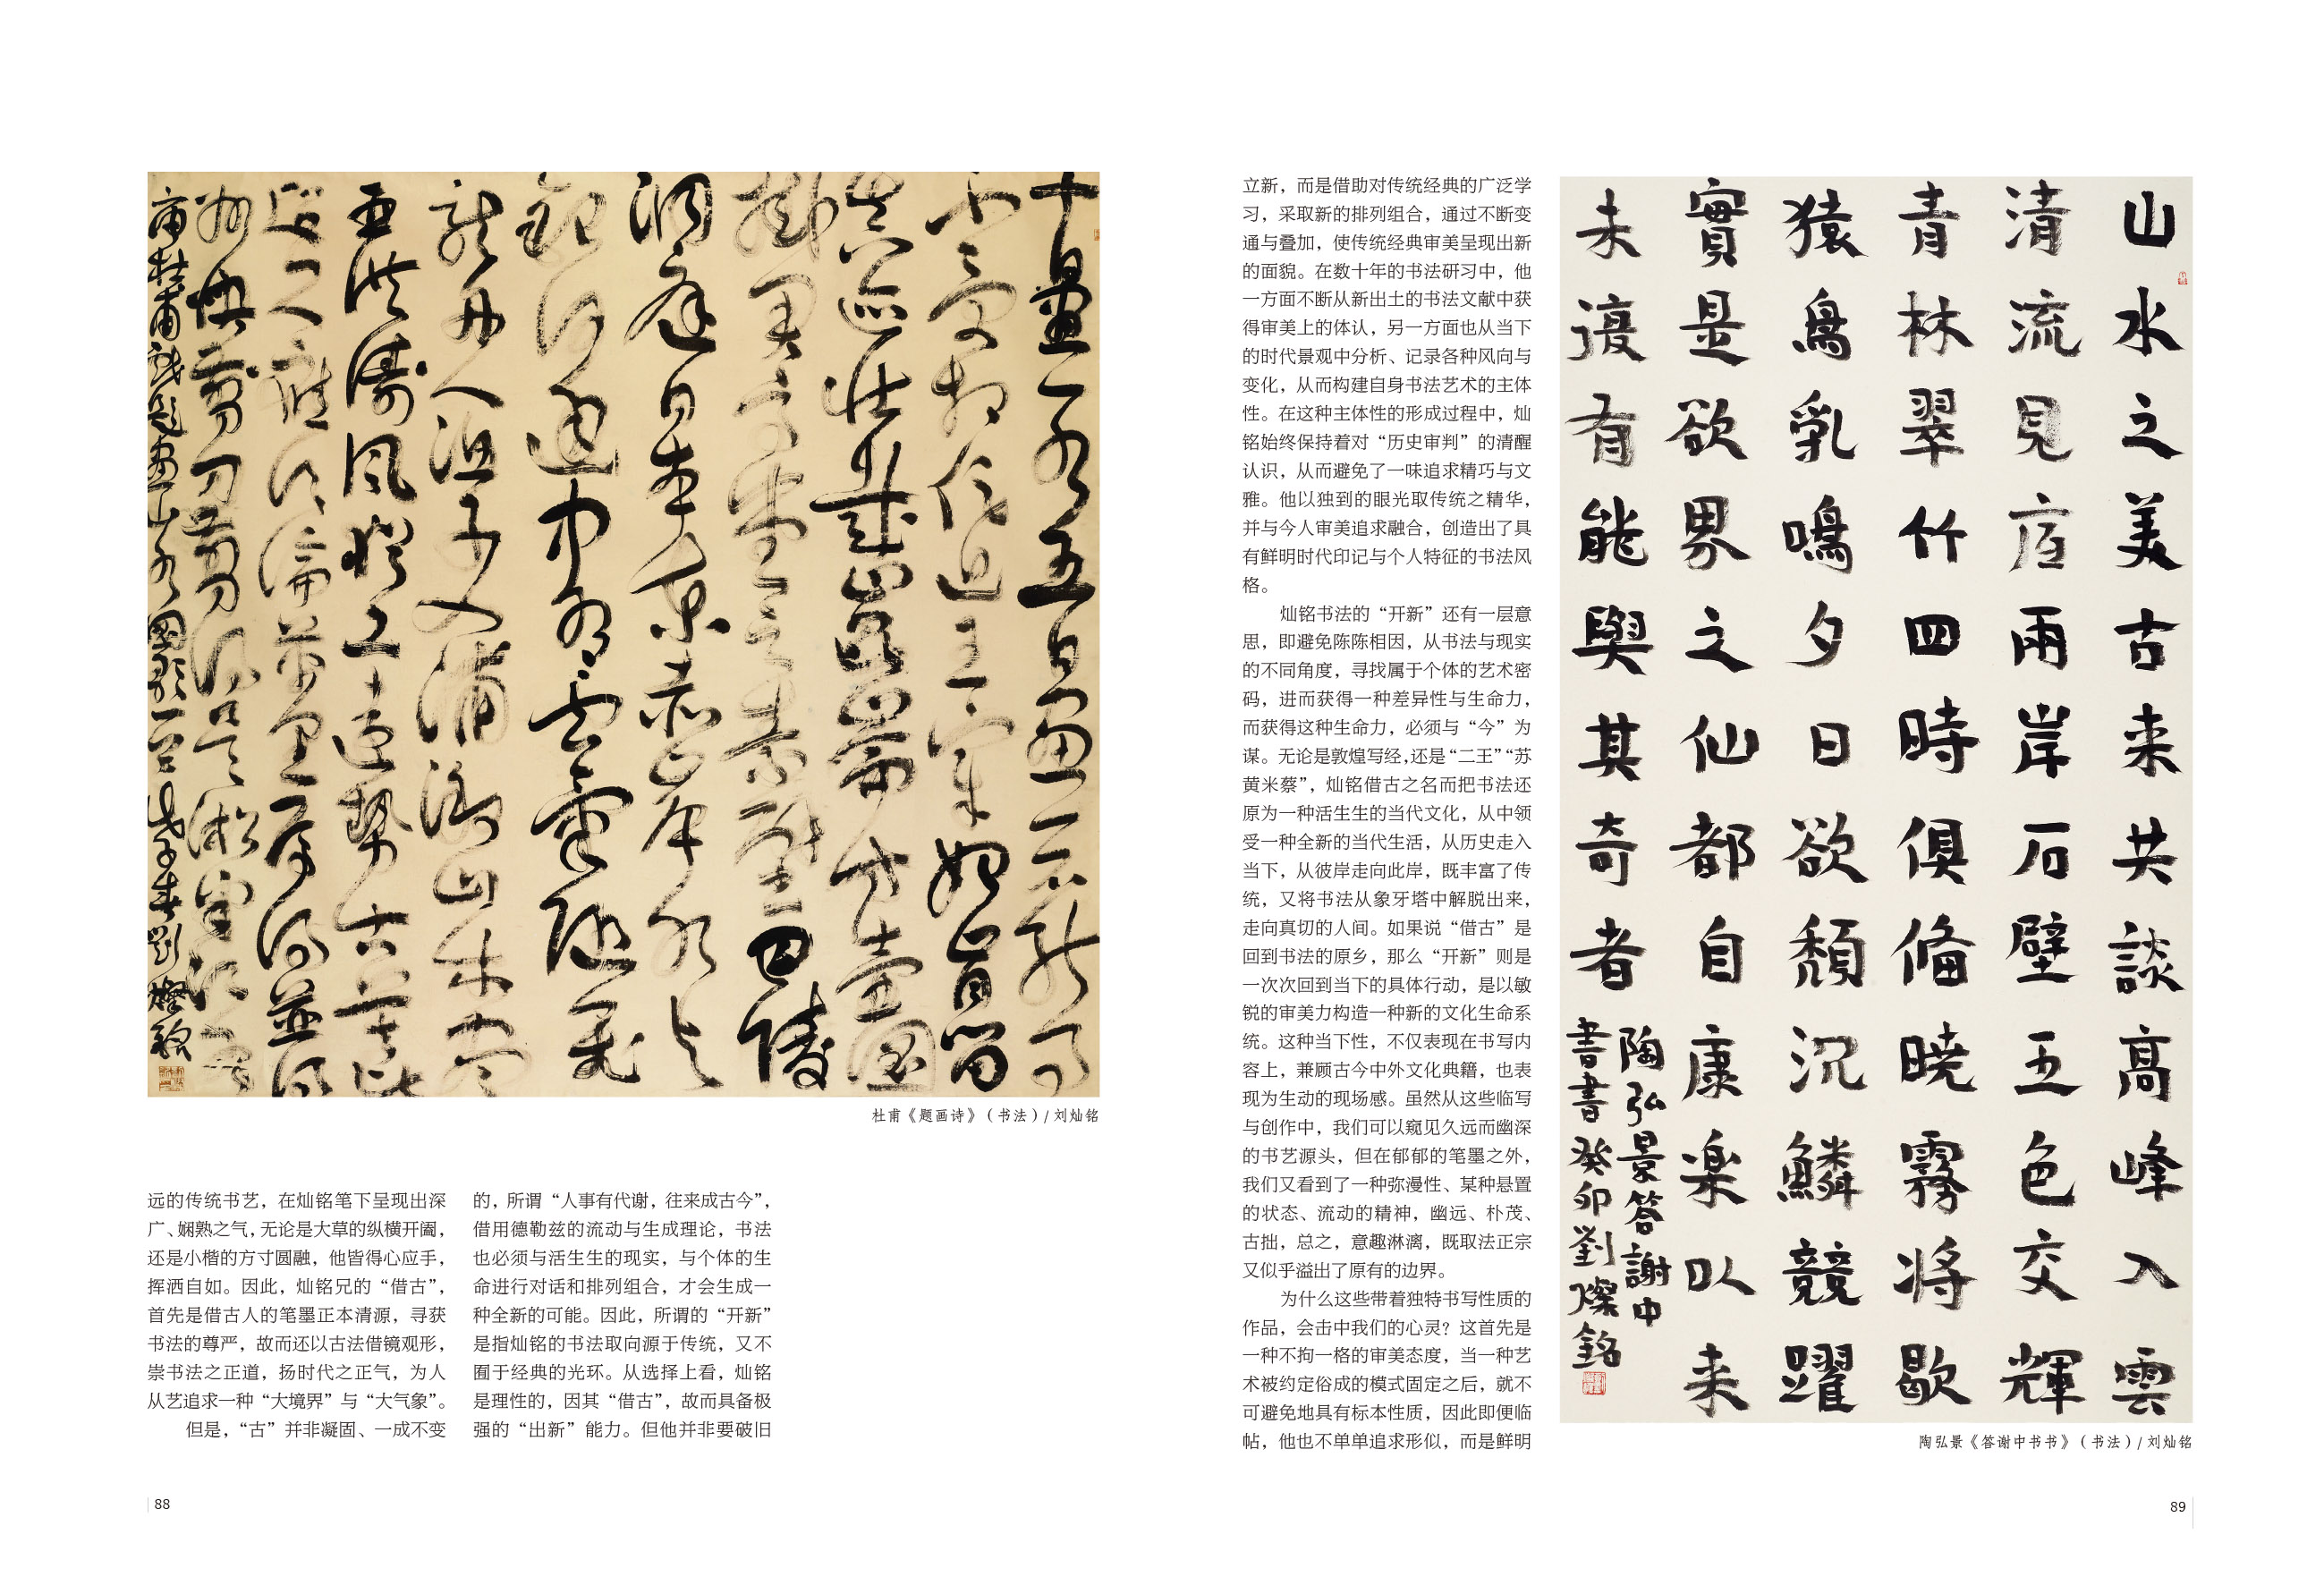 十日畫一水五日畫一石能事
不受相促迫王宰始肯留
真迹壯哉崑崙方壺圖
掛君高堂之素壁巴陵
洞庭日本東赤岸水與
銀河通中有雲氣隨飛
龍舟人漁子入浦漵山木盡
亞洪濤風尤工遠勢古莫比
咫尺應須論萬里焉得並
州快剪刀剪取吴淞半江水
杜甫戲題畫山水圖歌一首戊子春劉燦銘
杜甫《题画诗》(书法)/ 刘灿铭
远的传统书艺，在灿铭笔下呈现出深
广、娴熟之气，无论是大草的纵横开阖，
还是小楷的方寸圆融，他皆得心应手，
挥洒自如。因此，灿铭兄的“借古”，
首先是借古人的笔墨正本清源，寻获
书法的尊严，故而还以古法借镜观形，
崇书法之正道，扬时代之正气，为人
从艺追求一种“大境界”与“大气象”。
但是，“古”并非凝固、一成不变
的，所谓“人事有代谢，往来成古今”，
借用德勒兹的流动与生成理论，书法
也必须与活生生的现实，与个体的生
命进行对话和排列组合，才会生成一
种全新的可能。因此，所谓的“开新”
是指灿铭的书法取向源于传统，又不
囿于经典的光环。从选择上看，灿铭
是理性的，因其“借古”，故而具备极
强的“出新”能力。但他并非要破旧
88
立新，而是借助对传统经典的广泛学
习，采取新的排列组合，通过不断变
通与叠加，使传统经典审美呈现出新
的面貌。在数十年的书法研习中，他
一方面不断从新出土的书法文献中获
得审美上的体认，另一方面也从当下
的时代景观中分析、记录各种风向与
变化，从而构建自身书法艺术的主体
性。在这种主体性的形成过程中，灿
铭始终保持着对“历史审判”的清醒
认识，从而避免了一味追求精巧与文
雅。他以独到的眼光取传统之精华，
并与今人审美追求融合，创造出了具
有鲜明时代印记与个人特征的书法风
格。
灿铭书法的“开新”还有一层意
思，即避免陈陈相因，从书法与现实
的不同角度，寻找属于个体的艺术密
码，进而获得一种差异性与生命力，
而获得这种生命力，必须与“今”为
谋。无论是敦煌写经，还是“二王”“苏
黄米蔡”，灿铭借古之名而把书法还
原为一种活生生的当代文化，从中领
受一种全新的当代生活，从历史走入
当下，从彼岸走向此岸，既丰富了传
统，又将书法从象牙塔中解脱出来，
走向真切的人间。如果说“借古”是
回到书法的原乡，那么“开新”则是
一次次回到当下的具体行动，是以敏
锐的审美力构造一种新的文化生命系
统。这种当下性，不仅表现在书写内
容上，兼顾古今中外文化典籍，也表
现为生动的现场感。虽然从这些临写
与创作中，我们可以窥见久远而幽深
的书艺源头，但在郁郁的笔墨之外，
我们又看到了一种弥漫性、某种悬置
的状态、流动的精神，幽远、朴茂、
古拙，总之，意趣淋漓，既取法正宗
又似乎溢出了原有的边界。
为什么这些带着独特书写性质的
作品，会击中我们的心灵？这首先是
一种不拘一格的审美态度，当一种艺
术被约定俗成的模式固定之后，就不
可避免地具有标本性质，因此即便临
帖，他也不单单追求形似，而是鲜明
山水之美古来共談高峰入雲
清流見底兩岸石壁五色交輝
青林翠竹四時俱備曉霧将歇
猿鳥乱鳴夕日欲頹沉鱗競躍
實是欲界之仙都自康楽以来
未復有能與其奇者
陶弘景答謝中
書書癸卯劉燦銘
陶弘景《答谢中书书》(书法)/ 刘灿铭
89